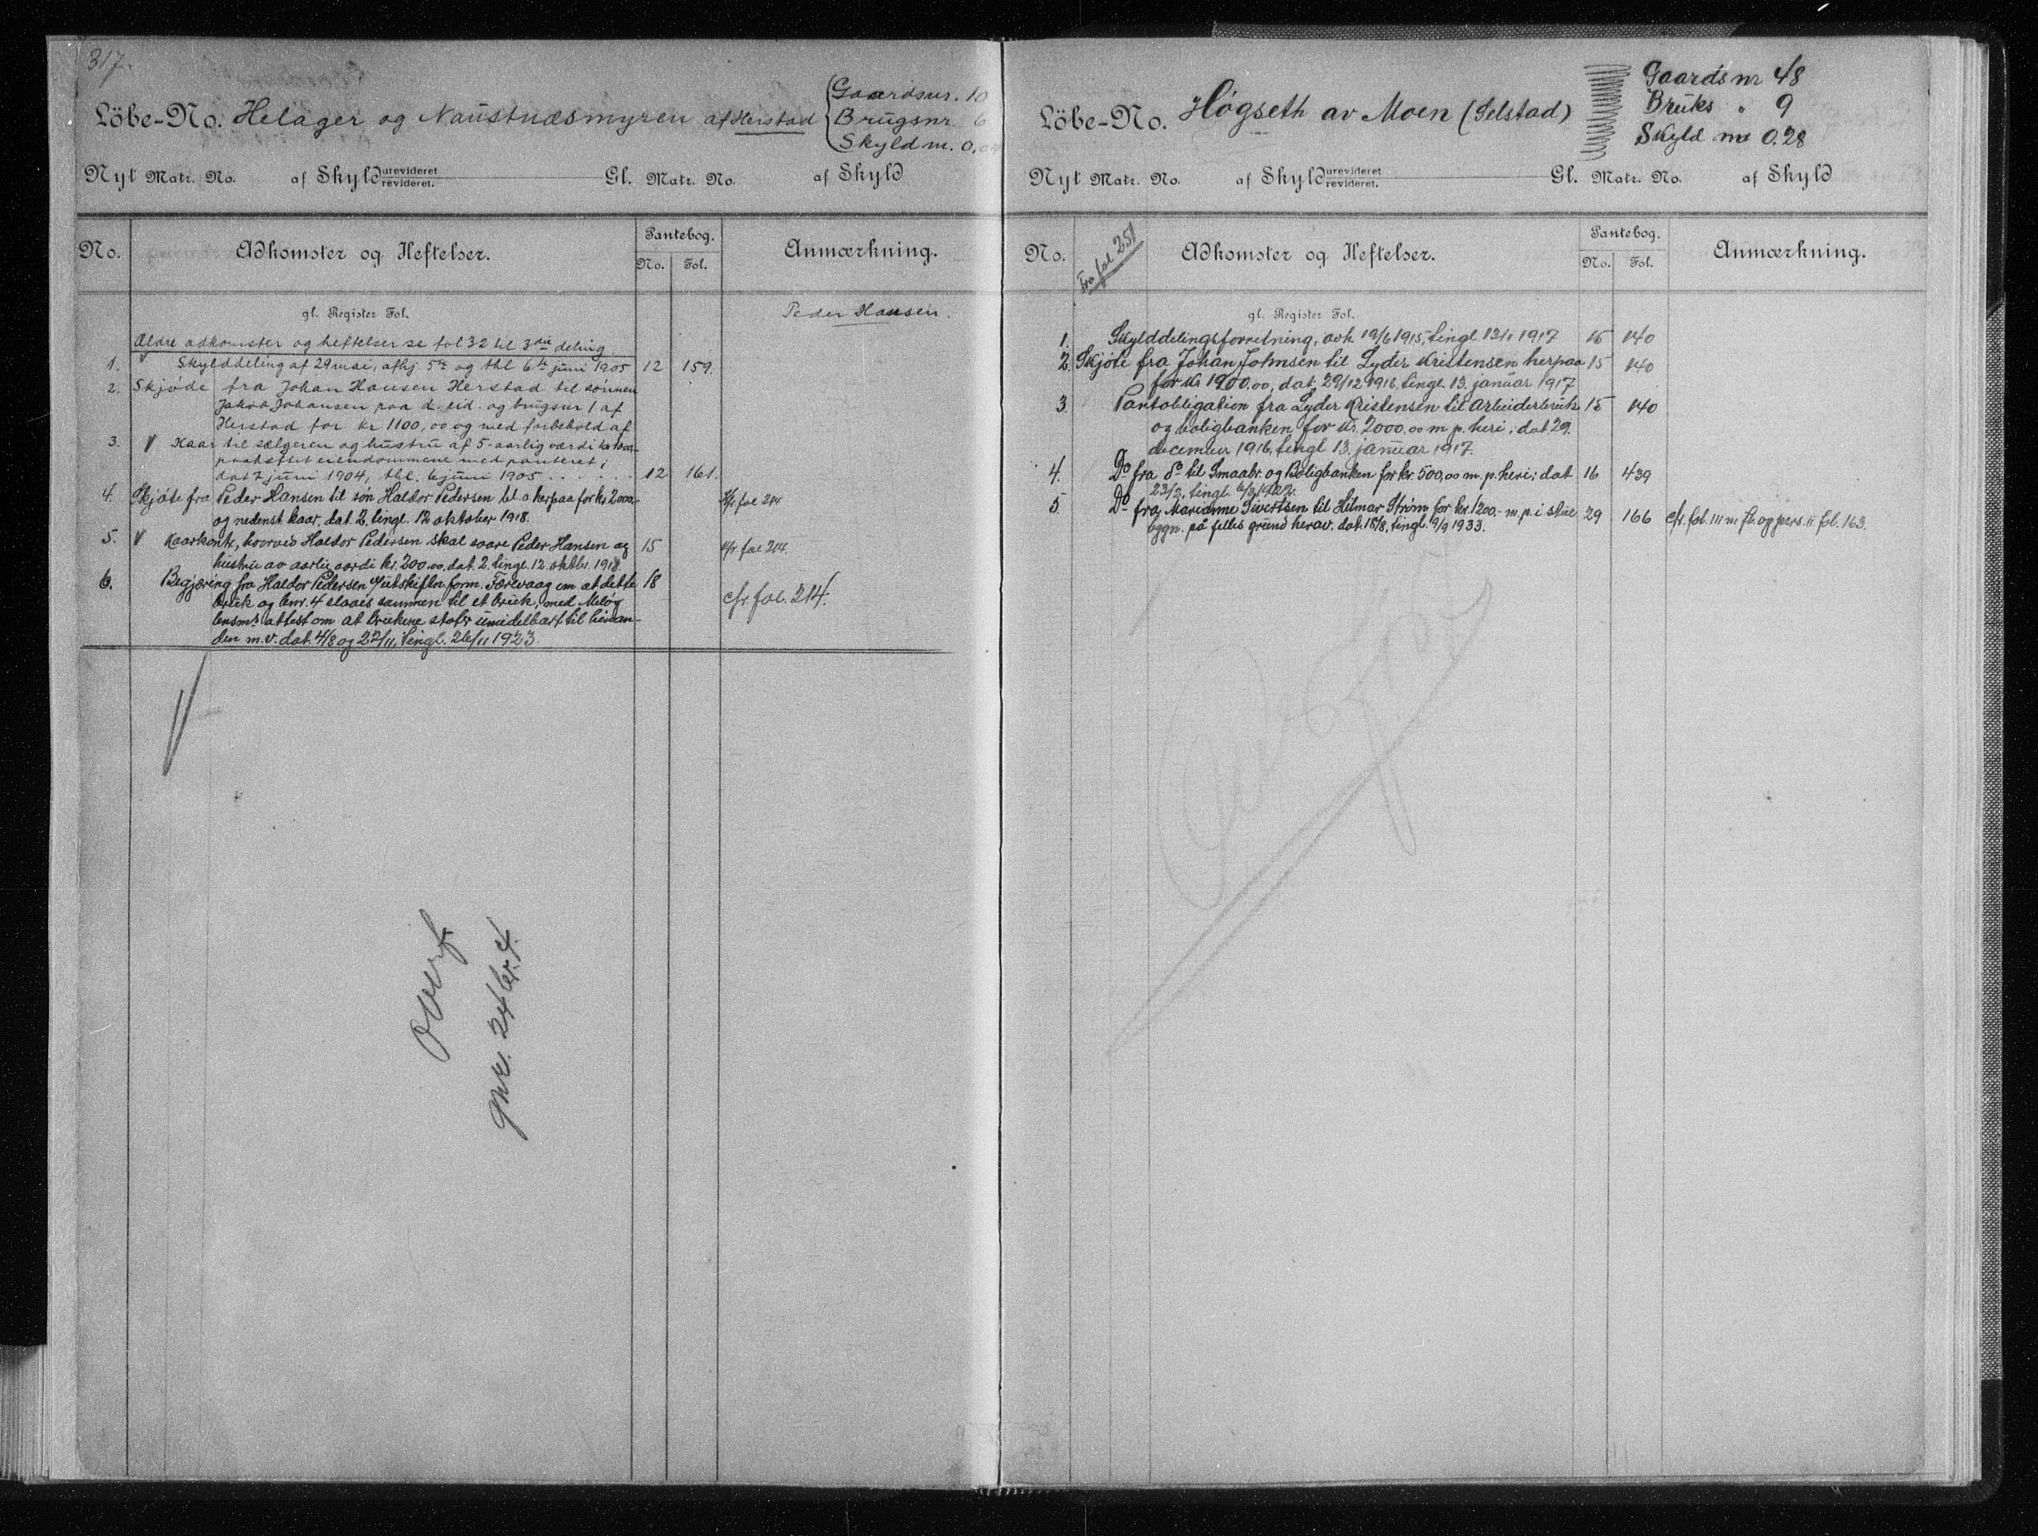 317.
Löbe-No. Helager og Naustnæsmyren af Herstad
Gaardsnr. 10
Brugsnr. 6
Skyld m. 0.04
Nyt Matr. No. af Skyld urevideret revideret. Gl. Matr. No. af Skyld
No. Adkomster og Heftelser. Pantebog. No. Fol. Anmærkning.
gl. Register Fol. Peder Hansen.
Ældre adkomster og heftelser se fol 32 til 3die deling.
1. V Skylddeling af 29 mai, afhj. 5te og thl 6te juni 1905 12 159.
2. Skjøde fra Johan Hansen Herstad til sønnen
Jakob Johansen paa d. eid. og brugsnr 1 af
Herstad for kr 1100,00 og med forbehold af
3. V Kaar til sælgeren og hustru af 5-aarlig værdi kr
eiendommene med panteret;
dat 7 juni 1904, thl. 6 juni 1905 . . . . . . 12 161.
4. Skjøte fra Peder Hansen til søn Haldor Pedersen bl a herpaa for kr. 2000
og nedenst kaar, dat. 2. tingl. 12 oktober 1918. cfr fol 214
5. V Kaarkontr, hvorved Haldor Pedersen skal svare Peder Hansen og 15 cfr fol 214.
hustru av aarlig værdi kr. 200.00, dat. 2. tingl. 12. oktbr. 1918.
6. Begjæring fra Haldor Pedersen v/utskiftn. form. Færevaag om at dette 18 cfr fol. 214.
bruk og bnr. 4 slaaes sammen til et bruk, med Meløy
lensm.s attest om at brukene støter umidelbart til hinan-
den m. v. dat. 4/8 og 22/11, tingl. 26/11 1923.
V
Overf.
gnr. 24 br. 4.
Löbe-No. Høgseth av Moen (Selstad)
Gaards nr 48
Bruks " 9
Skyld m 0.28
Nyt Matr. No. af Skyld urevideret revideret. Gl. Matr. No. af Skyld
No. Fra fol 251 Adkomster og Heftelser. Pantebog. No. Fol. Anmærkning.
gl. Register Fol.
1. Skylddelingsforretning, avh 19/6 1915, tingl. 13/1 1917 15 140
2. Skjøte fra Johan Johnsen til Lyder Kristensen herpaa 15 140
for kr 1900.00, dat. 29/12 1916, tingl. 13. januar 1917
3. Pantobligation fra Lyder Kristensen til Arbeiderbruk 15 140
og boligbanken for kr. 2000.00 m. p. heri; dat. 29.
december 1916, tingl 13. januar 1917.
4. Do fra do til Smaabr. og Boligbanken for kr. 500,00 m. p. heri; dat 16 439
23/2, tingl. 6/3 1922.
5. Do fra Marianne Sivertsen til Hilmar Strøm for kr. 1200.- m. p. i 29 166 cfr. fol. 111 og pers. II fol. 163.
bygn. på felles grund herav. dat. 18/8, tingl. 9/9 1933.